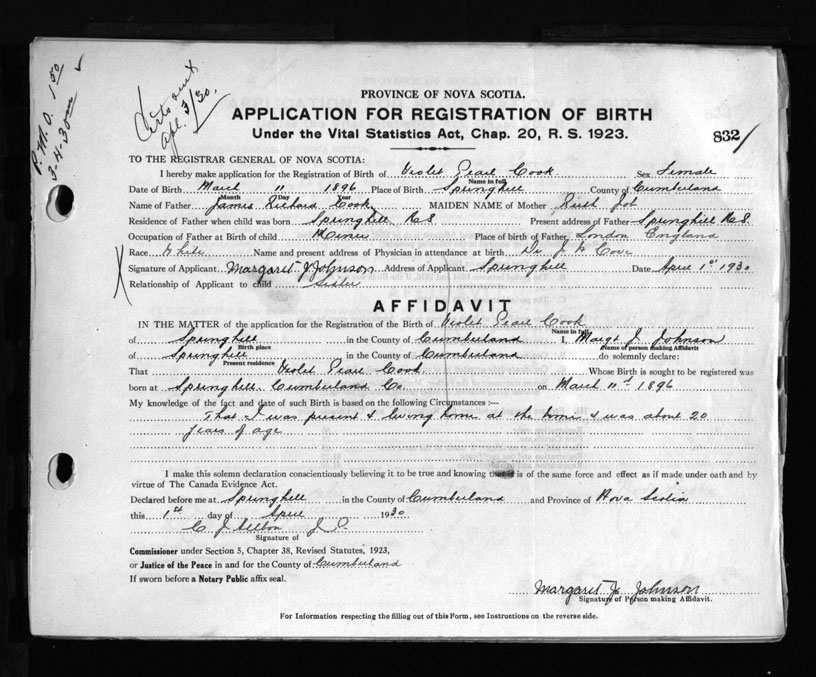 P.M.O. 1 50
3-4-30
Certs sent
Apl. 3/30.
PROVINCE OF NOVA SCOTIA.
APPLICATION FOR REGISTRATION OF BIRTH
Under the Vital Statistics Act, Chap. 20, R. S. 1923.
832
TO THE REGISTRAR GENERAL OF NOVA SCOTIA:
I hereby make application for the Registration of Birth of Violet Pearl Cook Sex Female
Name in full
Date of Birth March 11 1896 Place of Birth Springhill County of Cumberland
Month Day Year
Name of Father James Richard Cook MAIDEN NAME of Mother Ruth Job
Residence of Father when child was born Springhill N S Present address of Father Springhill N S.
Occupation of Father at Birth of child Miner Place of birth of Father London England
Race White Name and present address of Physician in attendance at birth Dr J W Cove
X Signature of Applicant Margaret J Johnson Address of Applicant Springhill Date April 1st 1930
Relationship of Applicant to child Sister
AFFIDAVIT
IN THE MATTER of the application for the Registration of the Birth of Violet Pearl Cook
Name in full
of Springhill in the County of Cumberland I, Margt J. Johnson
Birth place Name of person making Affidavit
of Springhill in the County of Cumberland do solemnly declare:
Present residence
That Violet Pearl Cook Whose Birth is sought to be registered was
born at Springhill, Cumberland Co. on March 11th 1896
My knowledge of the fact and date of such Birth is based on the following Circumstances :—
That I was present & living home at the time & was about 20
years of age
I make this solemn declaration conscientiously believing it to be true and knowing that it is of the same force and effect as if made under oath and by
virtue of The Canada Evidence Act.
Declared before me at Springhill in the County of Cumberland and Province of Nova Scotia
this 1st day of April 1930
C J J. P.
Signature of
Commissioner under Section 5, Chapter 38, Revised Statutes, 1923,
or Justice of the Peace in and for the County of Cumberland
If sworn before a Notary Public affix seal.
Margaret J. Johnson
Signature of Person making Affidavit.
For Information respecting the filling out of this Form, see Instructions on the reverse side.